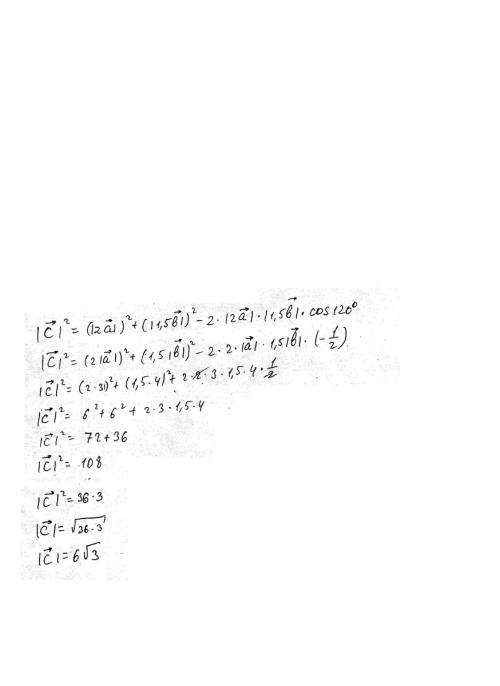 |c⃗|² = (|2a⃗|)² + (|1,5b⃗|)² − 2 · |2a⃗| · |1,5b⃗| · cos120°
|c⃗|² = (2|a⃗|)² + (1,5|b⃗|)² − 2 · 2 · |a⃗| · 1,5|b⃗| · (−1/2)
|c⃗|² = (2·3)² + (1,5·4)² + 2·2·3·1,5·4·1/2
|c⃗|² = 6² + 6² + 2·3·1,5·4
|c⃗|² = 72+36
|c⃗|² = 108
|c⃗|² = 36·3
|c⃗| = √36·3
|c⃗| = 6√3